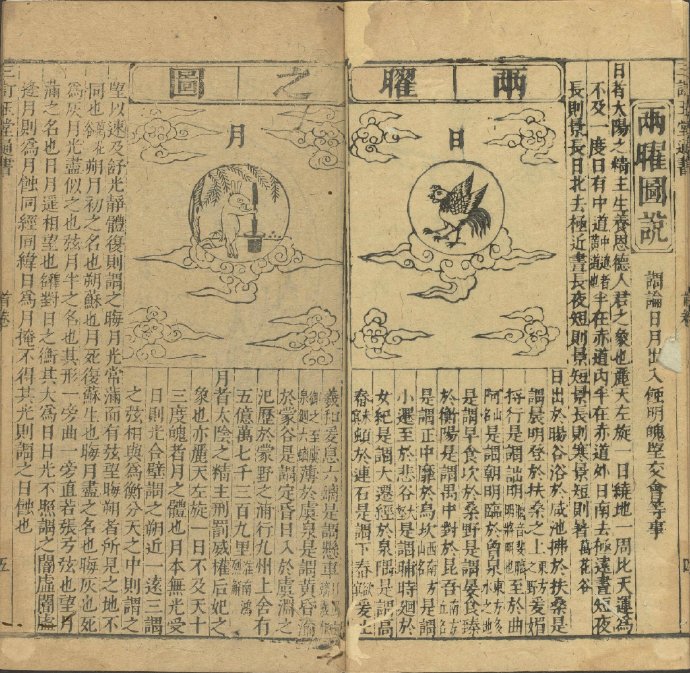 兩曜圖說
謂論日月出入䰟明魄望交會等事
日者太陽之精主生養恩德人君之象也麗天左旋一日繞地一周比天運爲
不及一度日有中道中道者黃道也半在赤道內半在赤道外日南去極遠晝短夜
長則景長日北去極近晝長夜短則景短景長則寒景短則暑萬花谷
兩曜
日
日出於暘谷浴於咸池拂於扶桑是
謂晨明登於扶桑之上東方爰
將行是謂朏明至於曲
阿山名是謂朝明臨於曾泉東方多水之地
是謂早食次於桑野是謂晏食臻
於衡陽是謂禺中對於昆吾南方丘名
是謂正中靡於鳥次西南方山名是謂
小還至於悲谷是謂晡時廻於
女紀是謂大還經於泉隅是謂高
舂頓於連石是謂下舂爰止
之圖
月
羲和爰息六螭是謂懸車薄於虞泉是謂黃昏淪
於蒙谷是謂定昏日入於虞淵之
汜歷於蒙野之浦行九州上舍有
五億萬七千三百九里淮南鴻烈解
月者太陰之精主刑罰威權后妃之
象也亦麗天左旋一日不及天十
三度魄者月之體也月本無光受
日則光合璧謂之朔近一遠三謂
之弦相與爲衡分天之中則謂之
望以速及舒光靜體復則謂之晦月光常滿而有弦望晦朔者所見之地不
同也朔月初之名也朔蘇也月死復蘇生也晦月盡之名也晦灰也死
爲灰月光盡似之也弦月半之名也其形一旁曲一旁直若張弓弦也望月
滿之名也日月遥相望也纔對日之衡其大爲日日光不照謂之闇虛闇虛
逢月則爲月蝕同經同緯日爲月掩不得其光則謂之日蝕也
三訂玉堂通書
首卷
五